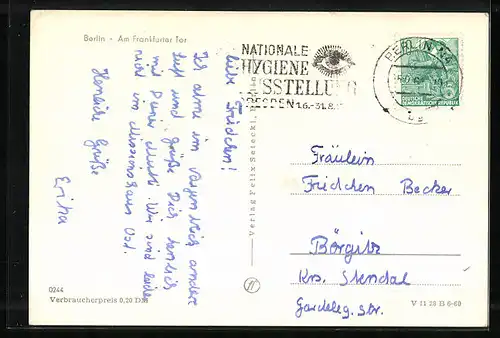 Berlin - Am Frankfurter Tor
NATIONALE
HYGIENE
AUSSTELLUNG
DRESDEN 1.6.-31.8.
BERLIN N4
DEUTSCHE
DEMOKRATISCHE REPUBLIK
Liebe Fridchen!
Ich atme im
Luft und grüße Dich herzlich
mit Deiner Mutti. Wir sind leider
nicht im Missionshaus Ost.
Herzliche Grüße
Erika
Verlag Felix Setecki,
Fräulein
Fridchen Becker
Börgitz
Krs. Stendal
Gardeleg. Str.
0244
Verbraucherpreis 0,20 DM
V 11 28 B 6-60